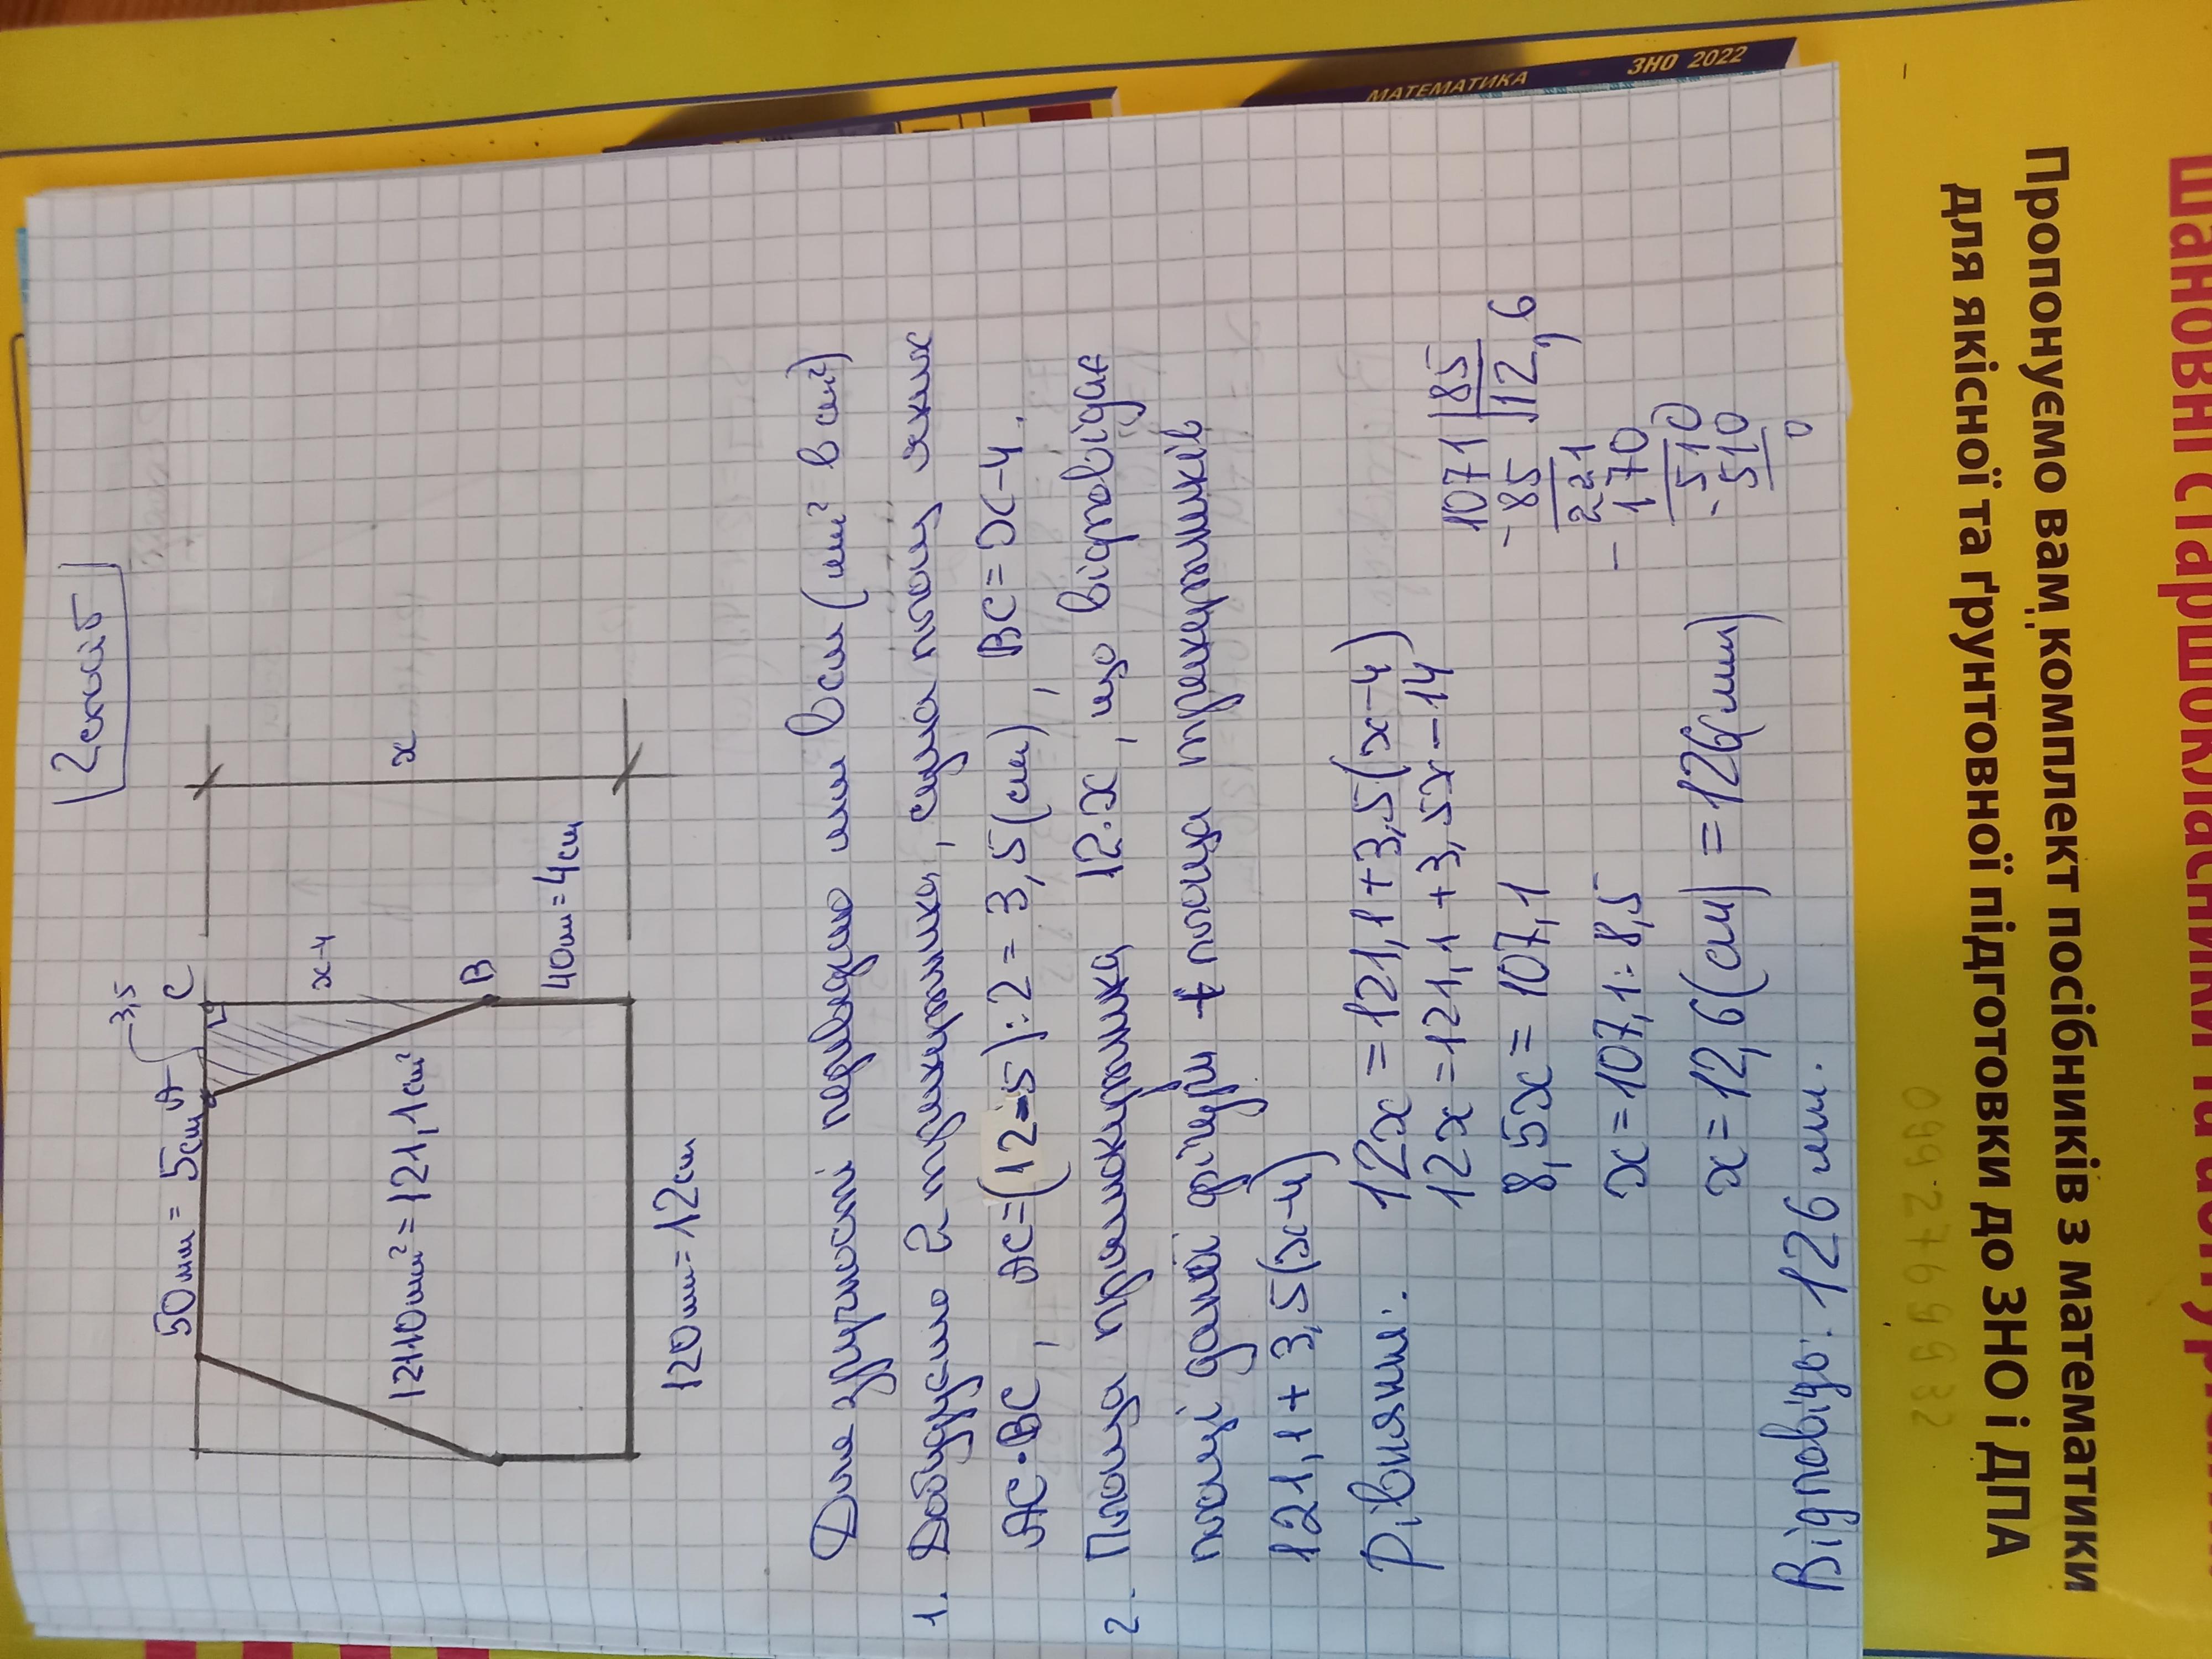 2 спосіб
50мм = 5см
A
3,5
C
x-4
x
12110мм² = 121,1см²
B
40мм = 4см
120мм = 12см
Для зручності переведемо мм в см (мм² в см²)
1. Добудуємо 2 трикутника, сума площ яких
AC·BC, AC=(12-5):2 = 3,5(см), BC = x-4.
2. Площа прямокутника 12·x, що відповідає
площі даної фігури + площа трикутників
121,1 + 3,5(x-4)
Рівняння: 12x = 121,1+3,5(x-4)
12x = 121,1 + 3,5x - 14
8,5x = 107,1
x = 107,1 : 8,5
x = 12,6(см) = 126(мм)
1071 | 85
-85 | 12,6
221
- 170
510
- 510
0
Відповідь: 126 мм.
МАТЕМАТИКА ЗНО 2022
Пропонуємо вам комплект посібників з математики
для якісної та ґрунтовної підготовки до ЗНО і ДПА